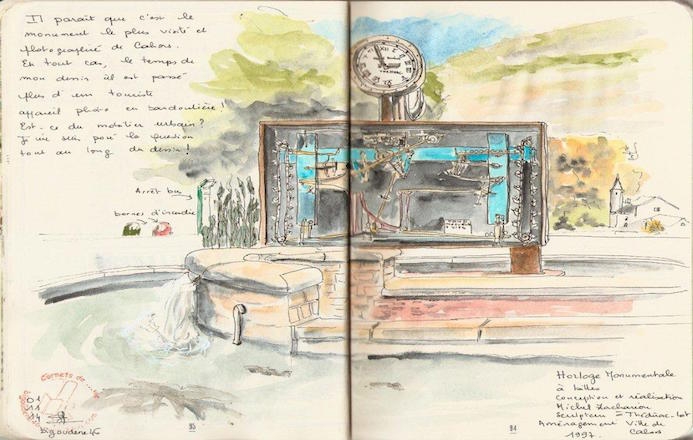 Il paraît que c'est le
monument le plus visité et
photographié de Cahors.
En tout cas, le temps de
mon dessin il est passé
plus d'un touriste
appareil photo en bandoulière!
Est-ce du mobilier urbain?
Je me suis posé la question
tout au long du dessin!
Arrêt bus
bornes d'incendie
Carnets de
01
11
14
Bigoudène46
83
84
Horloge Monumentale
à billes
Conception et réalisation
Michel Zachariou
Sculpteur = Thédirac. Lot
Aménagement Ville de
Cahors
1997.